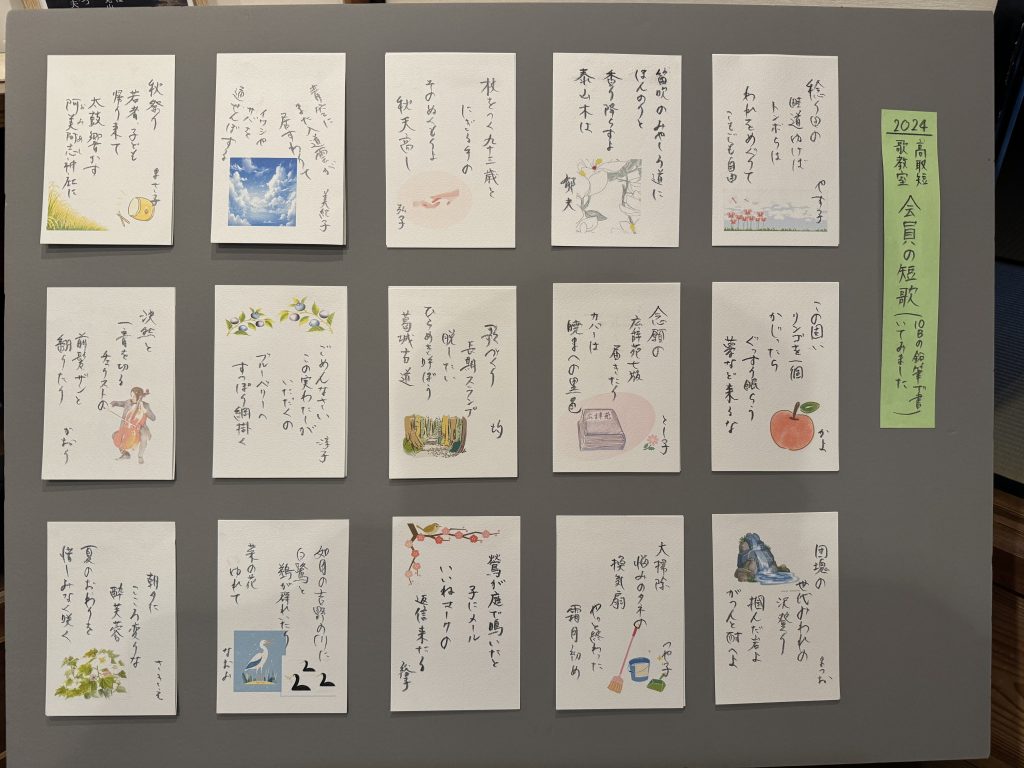 2024
高取短
歌教室
会員の短歌
(10Bの鉛筆で書
いてみました)
稔り田の
畦道ゆけば
トンボらは
われをめぐりて
こころも自由
やす子
笛吹のみやしろ道に
ほんのりと
香り降らすよ
泰山木は
郁夫
杖をつく九十三歳と
にぎる手の
そのぬくもりよ
秋天高し
弘子
青空に
まだ入道雲が
居すわりて
イワシや
サバを
通せんぼする
美紀子
秋祭り
若者子ども
帰り来て
太鼓響かす
阿美阿志神社に
まさ子
この固い
リンゴを一個
かじったら
ぐっすり眠ろう
夢など来るな
かよ
念願の
広辞苑七版
届きたり
カバーは
暁まへの墨色
とし子
広辞苑
歌づくり
長期スランプ
脱したい
ひらめき呼ぼう
葛城古道
均
ごめんなさい
この実わたしが
いただくの
ブルーベリーへ
すっぽり網掛く
淳子
決然と
一音を切る
チェリストの
前髪ザンと
翻りたり
かおり
団塊の
世代おわれの
沢登り
掴んだ岩よ
がつんと耐へよ
まつお
大掃除
悩みのタネの
換気扇
やっと終わった
霜月初め
つや子
鶯が庭で鳴いたと
子にメール
いいねマークの
返信来たる
如月の吉野の川に
白鷺と
鵜が群れたり
菜の花
ゆれて
なおお
22
朝夕に
こころ変りな
酔芙蓉
夏のおわりを
惜しみなく咲く